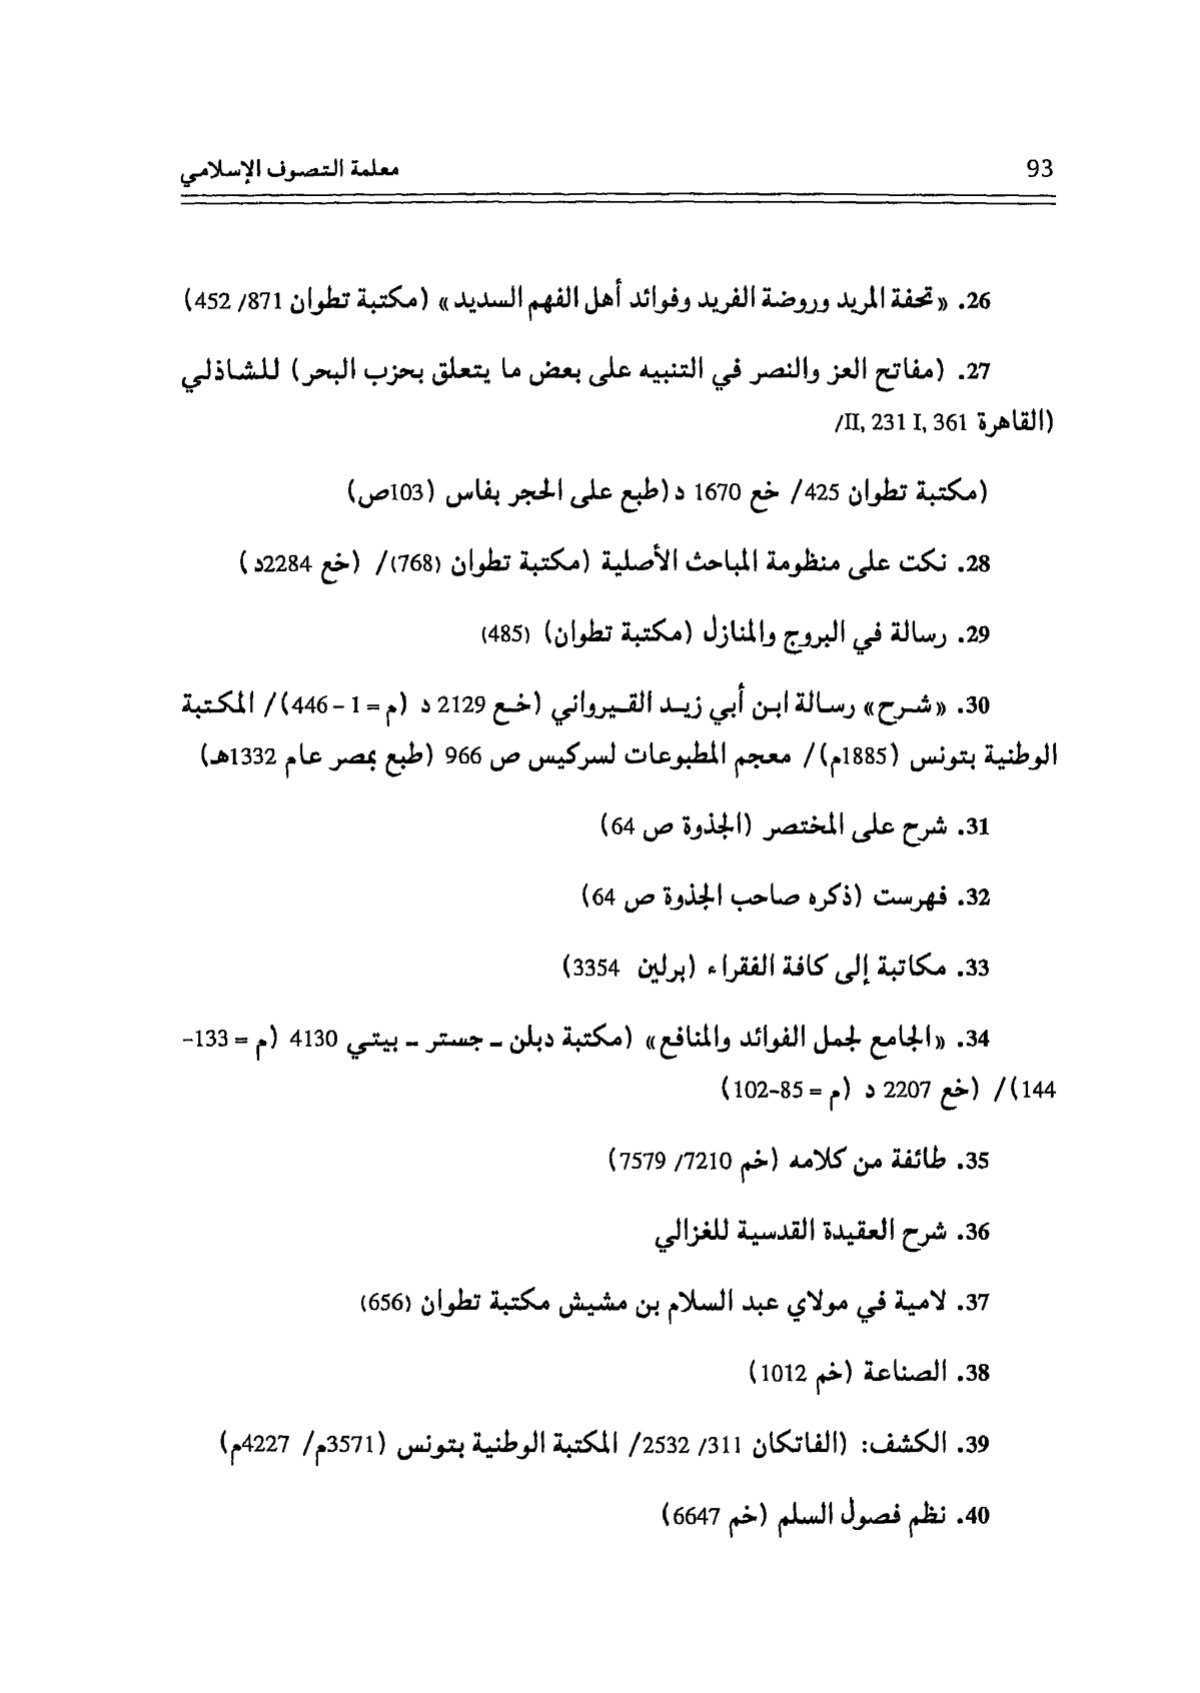 93 معلمة التصوف الإسلامي
26. «تحفة المريد وروضة الفريد وفوائد أهل الفهم السديد» (مكتبة تطوان 871/ 452)
27. (مفاتح العز والنصر في التنبيه على بعض ما يتعلق بحزب البحر) للشاذلي
(القاهرة II, 231 I, 361/
(مكتبة تطوان 425/ خع 1670 د (طبع على الحجر بفاس (103ص)
28. نكت على منظومة المباحث الأصلية (مكتبة تطوان (768)/ (خع 2284د )
29. رسالة في البروج والمنازل (مكتبة تطوان) (485)
30. «شرح» رسالة ابن أبي زيد القيرواني (خع 2129 د (م = 1 – 446)/ المكتبة
الوطنية بتونس (1885م)/ معجم المطبوعات لسركيس ص 966 (طبع بمصر عام 1332هـ)
31. شرح على المختصر (الجذوة ص 64)
32. فهرست (ذكره صاحب الجذوة ص 64)
33. مكاتبة إلى كافة الفقراء (برلين 3354)
34. «الجامع لجمل الفوائد والمنافع» (مكتبة دبلن – جستر – بيتي 4130 (م = 133-
144)/ (خع 2207 د (م = 85-102)
35. طائفة من كلامه (خم 7210/ 7579)
36. شرح العقيدة القدسية للغزالي
37. لامية في مولاي عبد السلام بن مشيش مكتبة تطوان (656)
38. الصناعة (خم 1012)
39. الكشف: (الفاتكان 311/ 2532/ المكتبة الوطنية بتونس (3571م/ 4227م)
40. نظم فصول السلم (خم 6647)